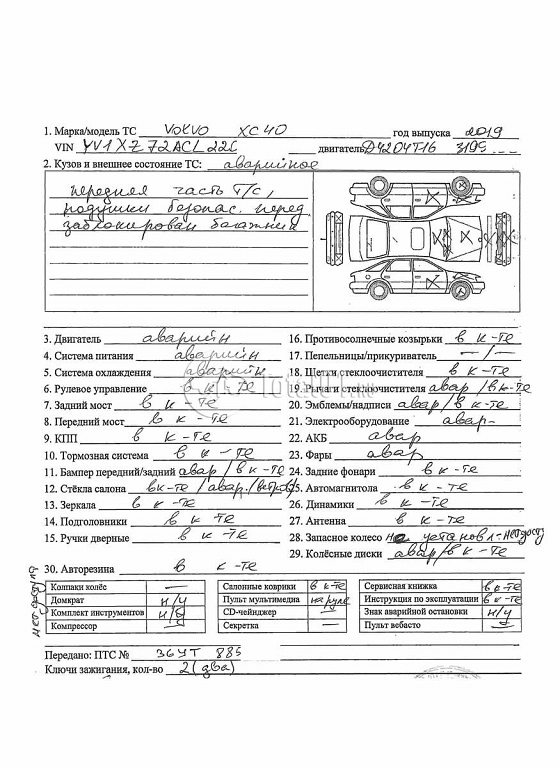 1. Марка/модель ТС Volvo XC40 год выпуска 2019
VIN YV1XZ72ACL22 двигатель D4204T16 3195...
2. Кузов и внешнее состояние ТС: аварийное
передняя часть Т/С,
подушки безопас. перед
заблокирован багажник
3. Двигатель аварийн
4. Система питания аварийн
5. Система охлаждения аварийн
6. Рулевое управление в к-те
7. Задний мост в к-те
8. Передний мост в к-те
9. КПП в к-те
10. Тормозная система в к-те
11. Бампер передний/задний авар/в к-те
12. Стёкла салона в к-те / авар.
13. Зеркала в к-те
14. Подголовники в к-те
15. Ручки дверные в к-те
16. Противосолнечные козырьки в к-те
17. Пепельницы/прикуриватель —/—
18. Щетки стеклоочистителя в к-те
19. Рычаги стеклоочистителя авар/в к-те
20. Эмблемы/надписи авар/в к-те
21. Электрооборудование авар-
22. АКБ авар
23. Фары авар
24. Задние фонари в к-те
25. Автомагнитола в к-те
26. Динамики в к-те
27. Антенна в к-те
28. Запасное колесо на установл-
29. Колёсные диски авар/в к-те
30. Авторезина в к-те
нет доступа
Колпаки колёс —
Домкрат н/у
Комплект инструментов н/у
Компрессор —
Салонные коврики в к-те
Пульт мультимедиа на руле
CD-чейнджер —
Секретка —
Сервисная книжка в к-те
Инструкция по эксплуатации в к-те
Знак аварийной остановки н/у
Пульт вебасто —
Передано: ПТС № 36УТ 885
Ключи зажигания, кол-во 2 (два)